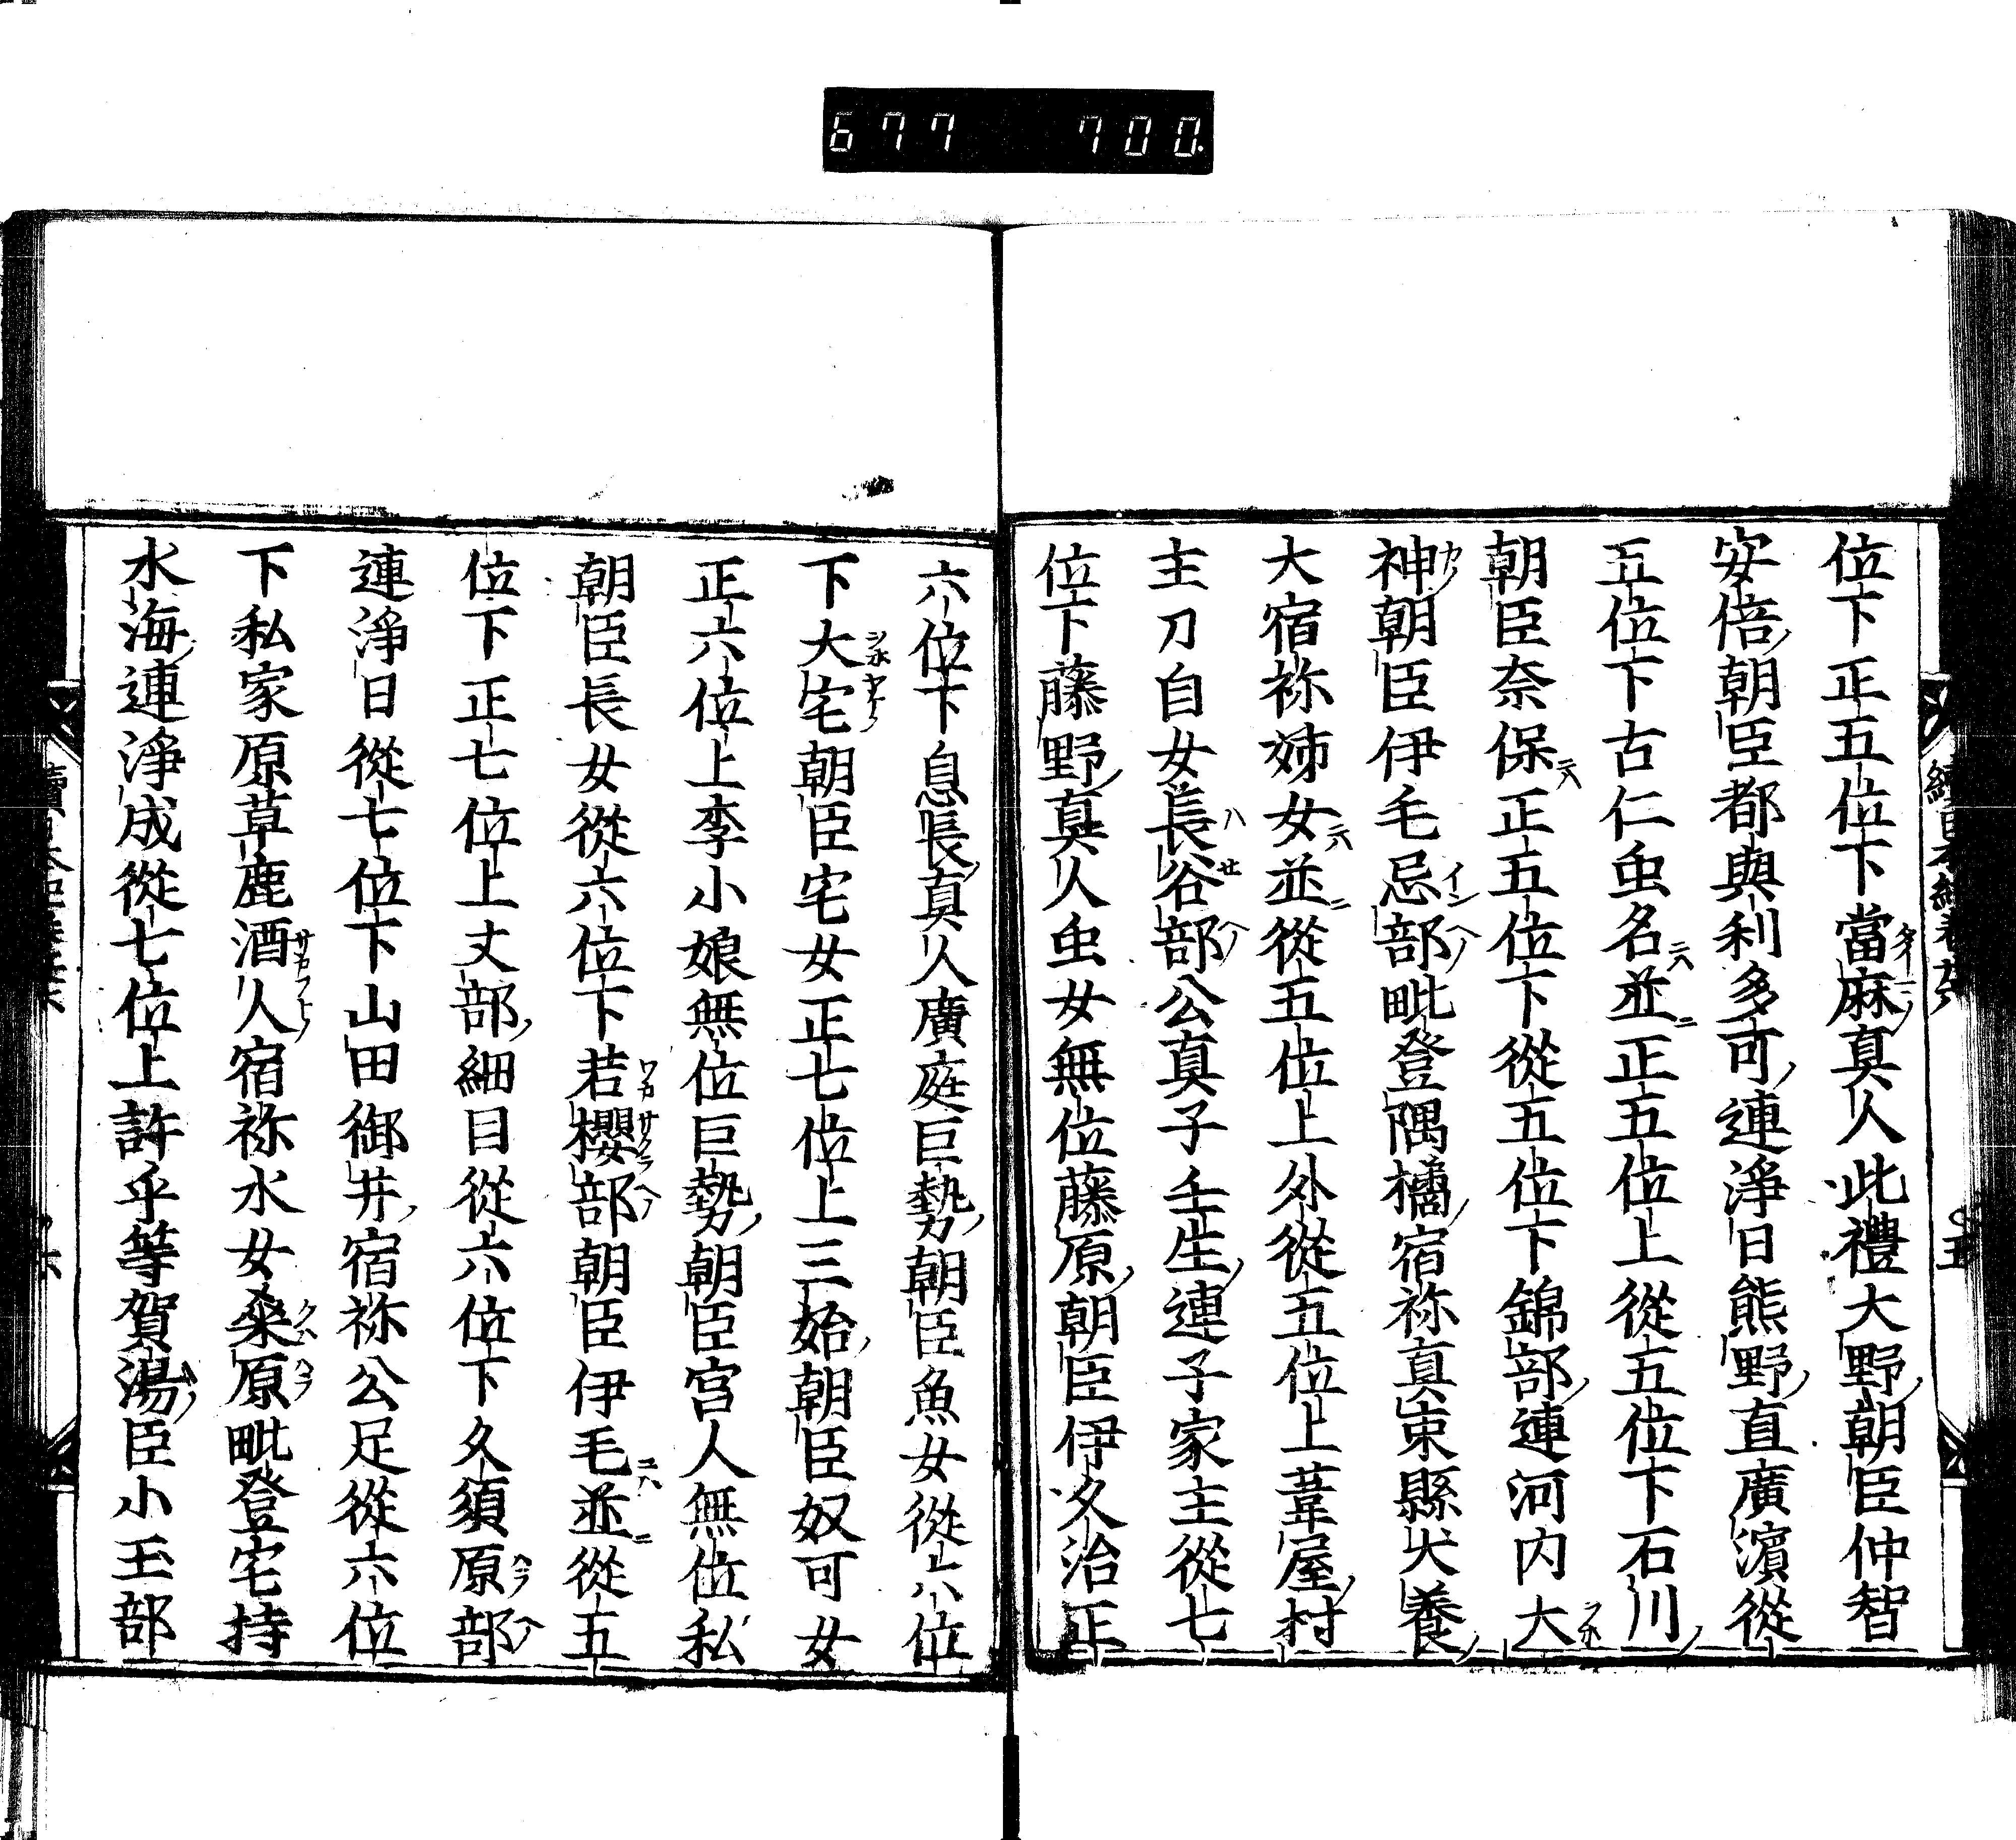 677 700
位下正五位下當麻真人此禮大野朝臣仲智
安倍朝臣都與利多可連淨日熊野直廣濱從
五位下古仁虫名並正五位上從五位下石川
朝臣奈保正五位下從五位下錦部連河内大
神朝臣伊毛忌部毗登隅橘宿祢真束縣犬養
大宿祢姉女並從五位上外從五位上葦屋村
主刀自女長谷部公真子壬生連子家主從七
位下藤野真人虫女無位藤原朝臣伊久治正
六位下息長真人廣庭巨勢朝臣魚女從六位
下大宅朝臣宅女正七位上三始朝臣奴可女
正六位上李小娘無位巨勢朝臣宮人無位私
朝臣長女從六位下若櫻部朝臣伊毛並從五
位下正七位上丈部細目從六位下久須原部
連淨日從七位下山田御井宿祢公足從六位
下私家原草鹿酒人宿祢水女桑原毗登宅持
水海連淨成從七位上許乎等賀湯臣小玉部